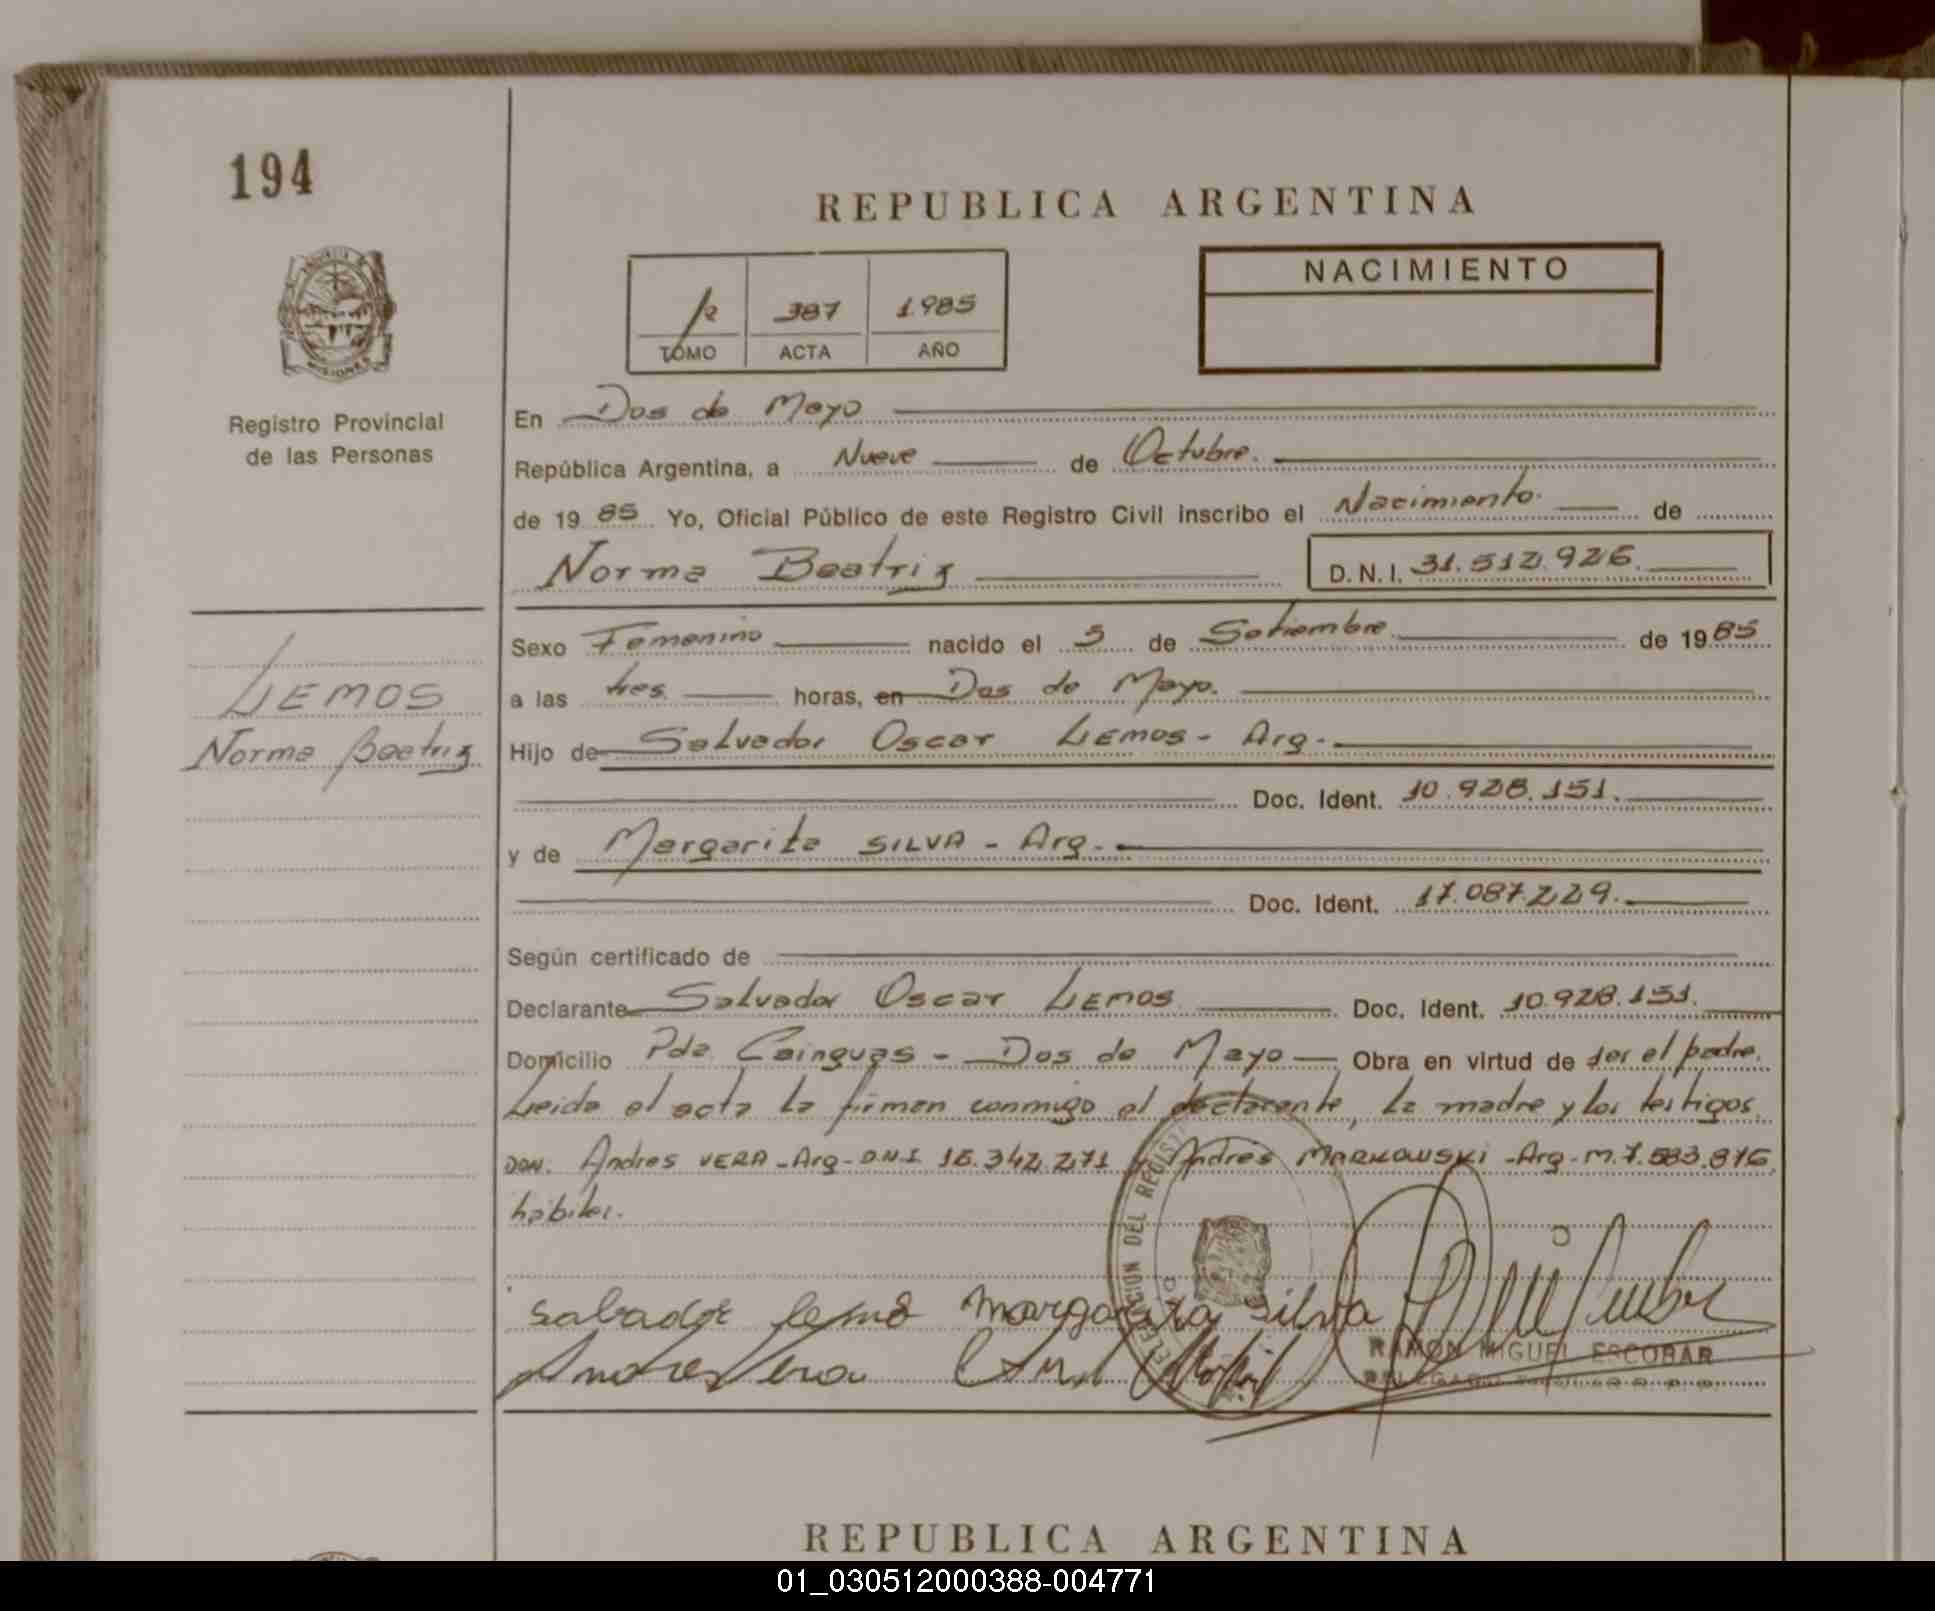 194
REPUBLICA ARGENTINA
MISIONES
Registro Provincial
de las Personas
387 1985
TOMO ACTA AÑO
NACIMIENTO
En Dos de Mayo
República Argentina, a Nueve de Octubre.
de 19 85 Yo, Oficial Público de este Registro Civil inscribo el Nacimiento de
Norma Beatriz D.N.I. 31.512.926.
Sexo Femenino nacido el 5 de Setiembre de 1985
a las tres horas, en Dos de Mayo.
Hijo de Salvador Oscar LEMOS - Arg.
Doc. Ident. 10.928.151.
y de Margarita SILVA - Arg.
Doc. Ident. 17.087.229.
Según certificado de
Declarante Salvador Oscar LEMOS Doc. Ident. 10.928.151.
Domicilio Pda. Cainguas - Dos de Mayo Obra en virtud de ser el padre.
Leida el acta la firman conmigo el declarante, la madre y los testigos.
DON. Andres VERA - Arg - D.N.I 16.342.271 y Andres MARKOWSKI - Arg - M. 7.583.876
habiles.
LEMOS
Norma Beatriz
Salbador lemo Margarita Silva
Andres Vera
RAMON MIGUEL ESCOBAR
REPUBLICA ARGENTINA
01_030512000388-004771